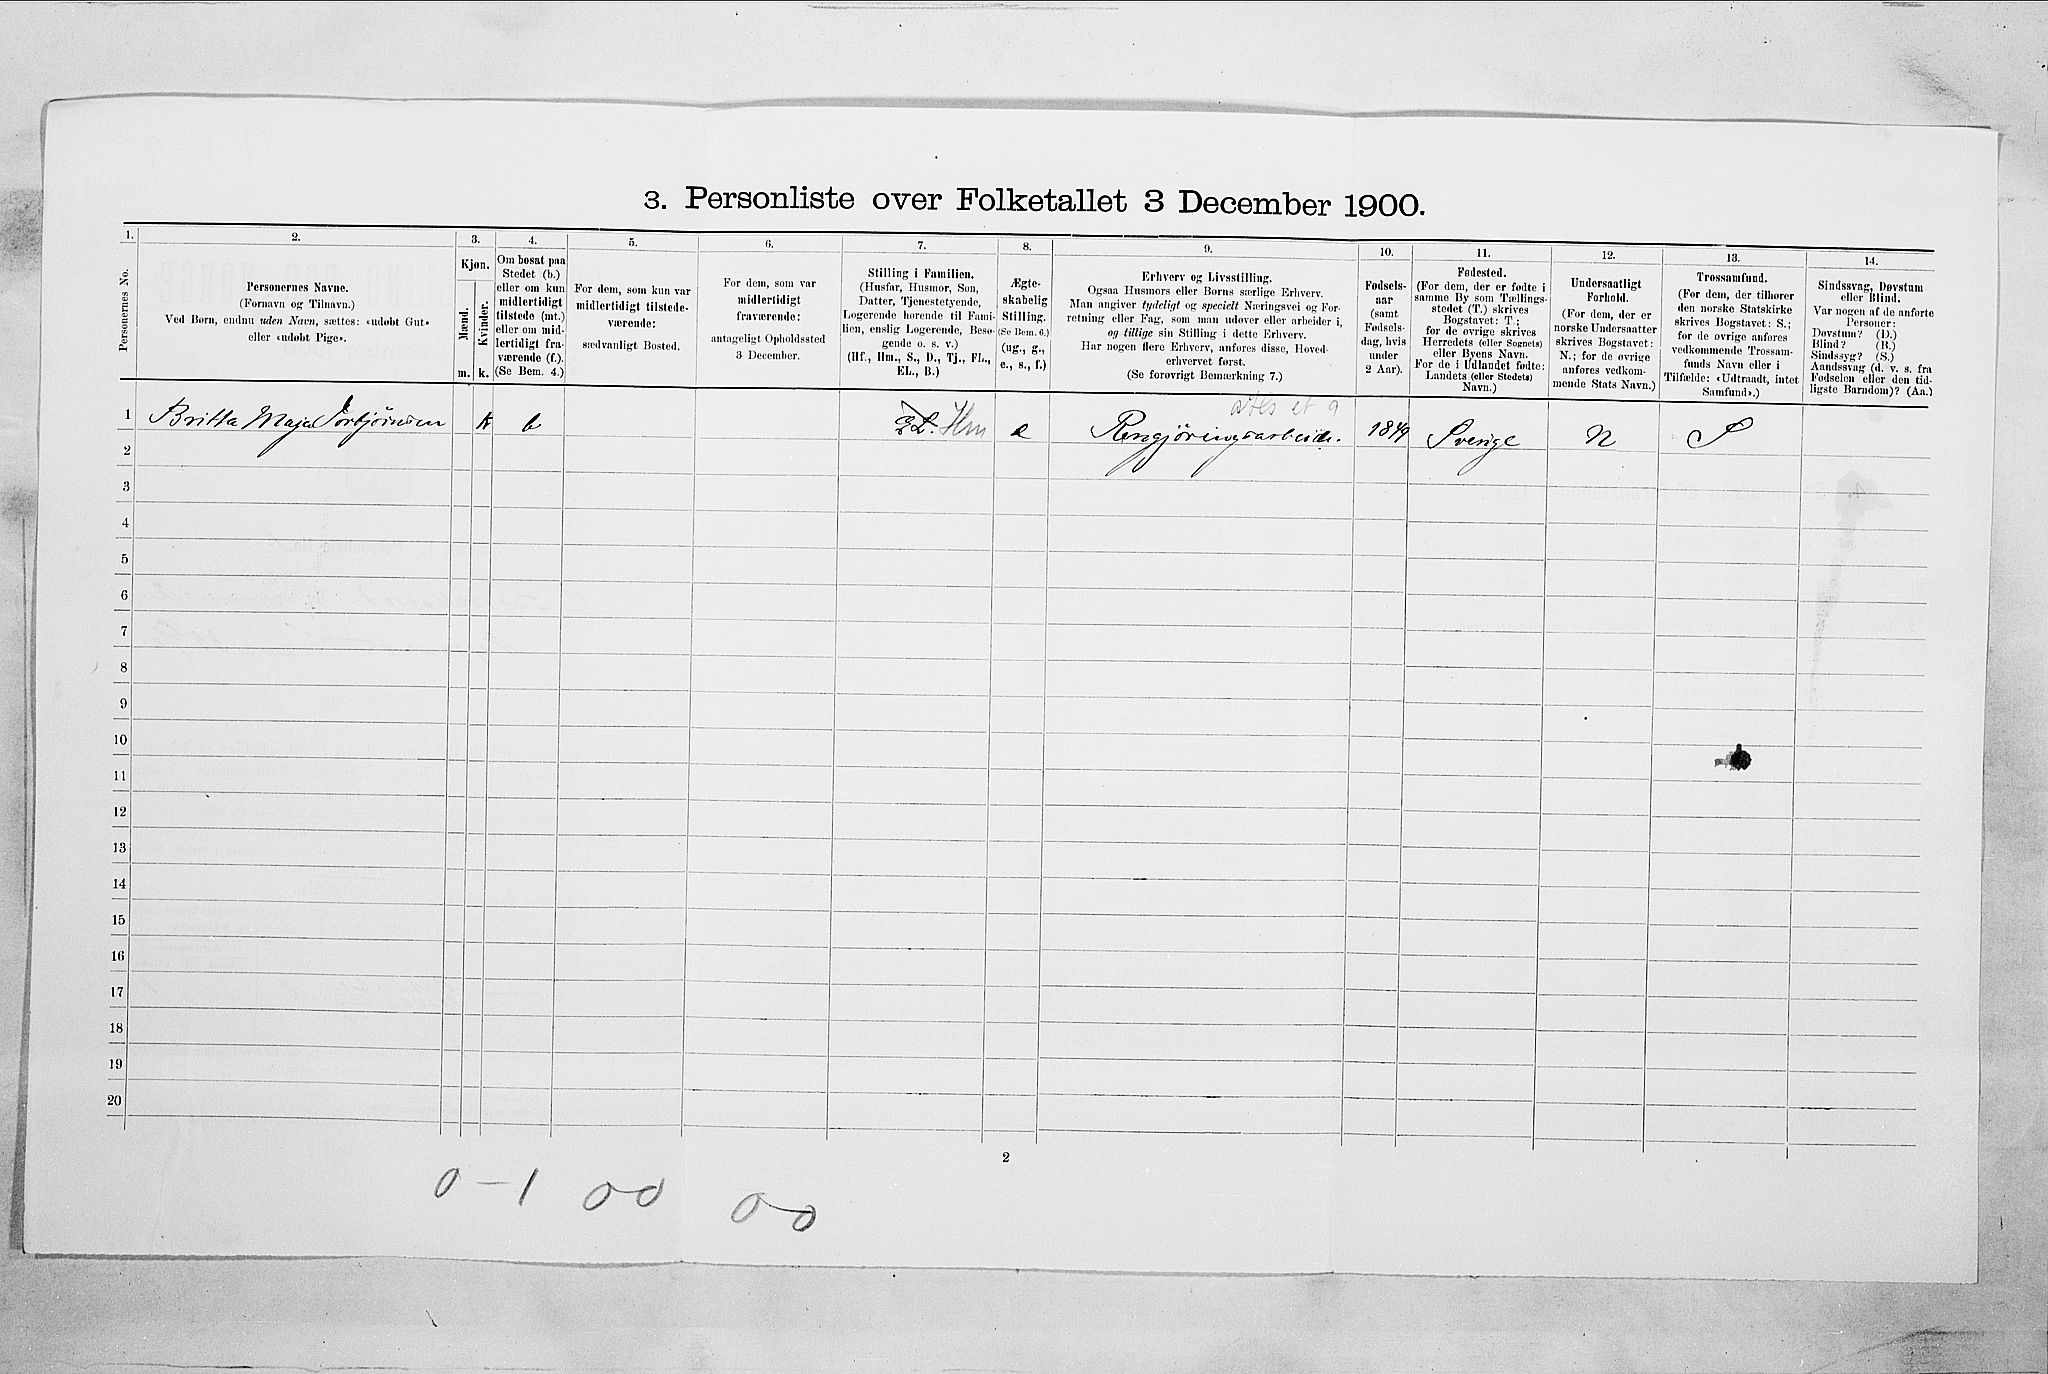 3. Personliste over Folketallet 3 December 1900.
1. 2. 3. 4. 5. 6. 7. 8. 9. 10. 11. 12. 13. 14.
Personernes No.
Personernes Navne.
(Fornavn og Tilnavn.)
Ved Børn, endnu uden Navn, sættes: «udøbt Gut»
eller «udøbt Pige».
Kjøn.
Mænd.
Kvinder.
m. k.
Om bosat paa
Stedet (b.)
eller om kun
midlertidigt
tilstede (mt.)
eller om mid-
lertidigt fra-
værende (f.).
(Se Bem. 4.)
For dem, som kun var
midlertidigt tilstede-
værende:
sædvanligt Bosted.
For dem, som var
midlertidigt
fraværende:
antageligt Opholdssted
3 December.
Stilling i Familien.
(Husfar, Husmor, Søn,
Datter, Tjenestetyende,
Logerende hørende til Fami-
lien, enslig Logerende, Besø-
gende o. s. v.)
(Hf., Hm., S., D., Tj., FL.,
EL., B.)
Ægte-
skabelig
Stilling.
(Se Bem. 6.)
(ug., g.,
e., s., f.)
Erhverv og Livsstilling.
Ogsaa Husmors eller Børns særlige Erhverv.
Man angiver tydeligt og specielt Næringsvei og For-
retning eller Fag, som man udøver eller arbeider i,
og tillige sin Stilling i dette Erhverv.
Har nogen flere Erhverv, anføres disse, Hoved-
erhvervet først.
(Se forøvrigt Bemærkning 7.)
Fødsels-
aar
(samt
Fødsels-
dag, hvis
under
2 Aar).
Fødested.
(For dem, der er fødte i
samme By som Tællings-
stedet (T.) skrives
Bogstavet: T.;
for de øvrige skrives
Herredets (eller Sognets)
eller Byens Navn.
For de i Udlandet fødte:
Landets (eller Stedets)
Navn.)
Undersaatligt
Forhold.
(For dem, der er
norske Undersaatter
skrives Bogstavet:
N.; for de øvrige
anføres vedkom-
mende Stats Navn.)
Trossamfund.
(For dem, der tilhører
den norske Statskirke
skrives Bogstavet: S.;
for de øvrige anføres
vedkommende Trossam-
funds Navn eller i
Tilfælde: «Udtraadt, intet
Samfund».)
Sindssvag, Døvstum
eller Blind.
Var nogen af de anførte
Personer:
Døvstum? (D.)
Blind? (B.)
Sindssyg? (S.)
Aandssvag (d. v. s. fra
Fødselen eller den tid-
ligste Barndom)? (Aa.)
1 Britta Maja Torbjørnsen k b Hm e Rengjøringsarbeide. 1849 Sverige N S
2
3
4
5
6
7
8
9
10
11
12
13
14
15
16
17
18
19
20
2
0 – 1 00 0–0